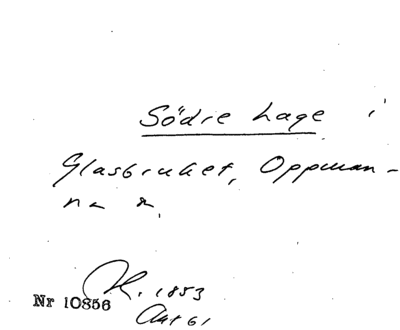 Södre Lage i
Glasbruket, Oppman-
na
K. 1853
Nr 10856
Akt 61